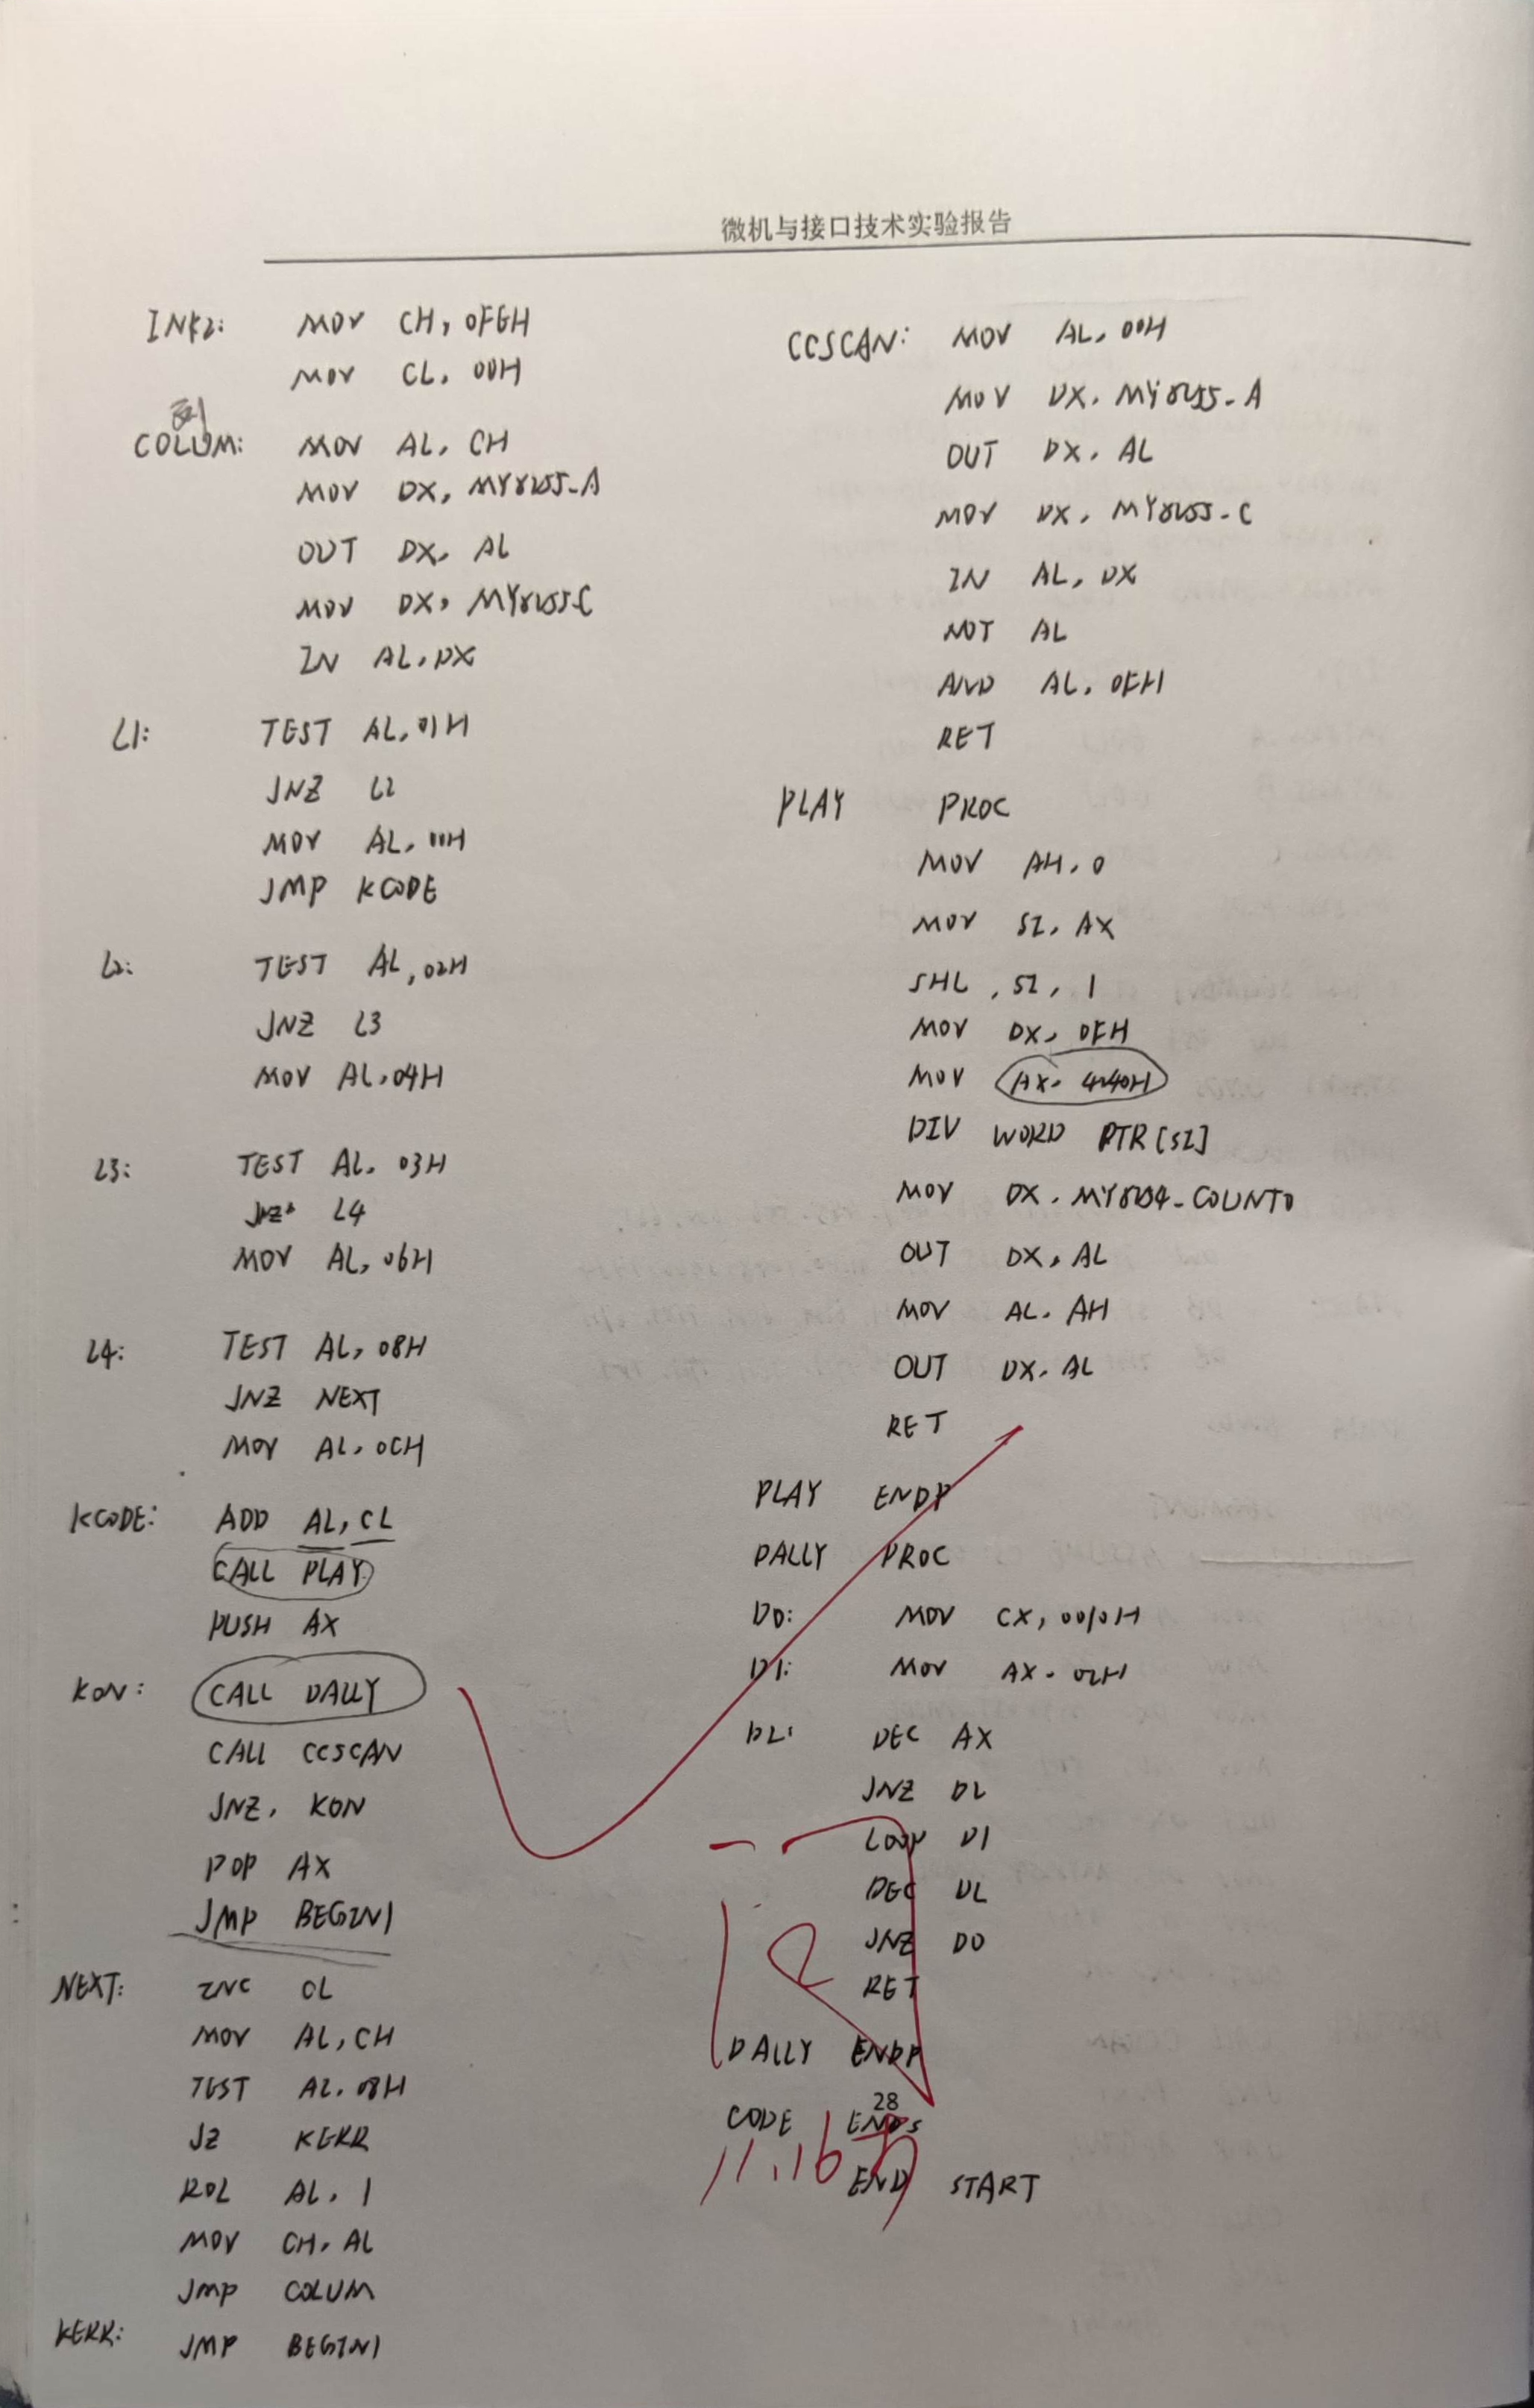 微机与接口技术实验报告
INK2: MOV CH, 0FEH
MOV CL, 00H
列
COLUM: MOV AL, CH
MOV DX, MY8255-A
OUT DX, AL
MOV DX, MY8255-C
IN AL, DX
L1: TEST AL, 01H
JNZ L2
MOV AL, 00H
JMP KCODE
L2: TEST AL, 02H
JNZ L3
MOV AL, 04H
L3: TEST AL, 03H
JNZ L4
MOV AL, 06H
L4: TEST AL, 08H
JNZ NEXT
MOV AL, 0CH
KCODE: ADD AL, CL
CALL PLAY
PUSH AX
KON: CALL DALLY
CALL CCSCAN
JNZ, KON
POP AX
JMP BEGIN1
NEXT: INC CL
MOV AL, CH
TEST AL, 08H
JZ KERR
ROL AL, 1
MOV CH, AL
JMP COLUM
KERR: JMP BEGIN1
CCSCAN: MOV AL, 00H
MOV DX, MY8255-A
OUT DX, AL
MOV DX, MY8255-C
IN AL, DX
NOT AL
AND AL, 0FH
RET
PLAY PROC
MOV AH, 0
MOV SI, AX
SHL , SI, 1
MOV DX, 0FH
MOV AX, 4240H
DIV WORD PTR[SI]
MOV DX, MY8254-COUNT0
OUT DX, AL
MOV AL, AH
OUT DX, AL
RET
PLAY ENDP
DALLY PROC
D0: MOV CX, 0010H
D1: MOV AX, 02H
D2: DEC AX
JNZ D2
LOOP D1
DEC DL
JNZ D0
RET
DALLY ENDP
28
CODE ENDS
11.16
END START